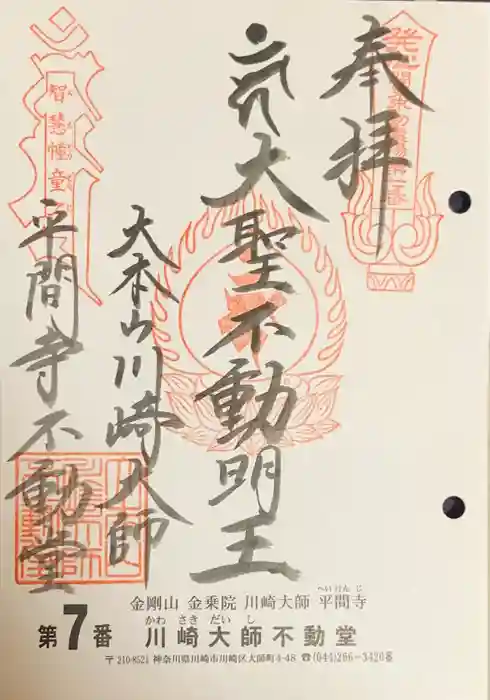 奉拝
大聖不動明王
大本山川崎大師
平間寺不動堂
智慧幢童子
金剛山 金乗院 川崎大師 平間寺
へいけんじ
第7番 川崎大師不動堂
かわさきだいし
〒210-8521 神奈川県川崎市川崎区大師町4-48 ☎(044)266-3420㈹